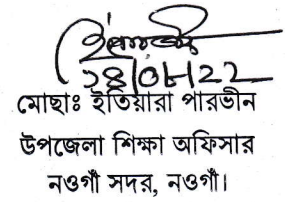 ২৪/০৮/২২
মোছাঃ ইতিয়ারা পারভীন
উপজেলা শিক্ষা অফিসার
নওগাঁ সদর, নওগাঁ।